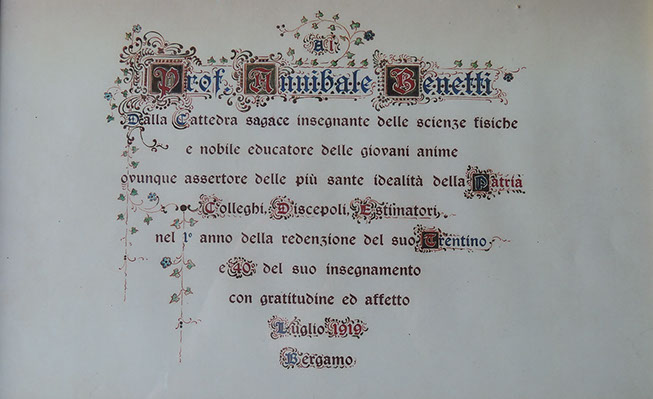 Al
Prof. Annibale Benetti
Dalla Cattedra sagace insegnante delle scienze fisiche
e nobile educatore delle giovani anime
ovunque assertore delle più sante idealità della Patria
Colleghi, Discepoli, Estimatori,
nel 1° anno della redenzione del suo Trentino
e 40° del suo insegnamento
con gratitudine ed affetto
Luglio 1919
Bergamo